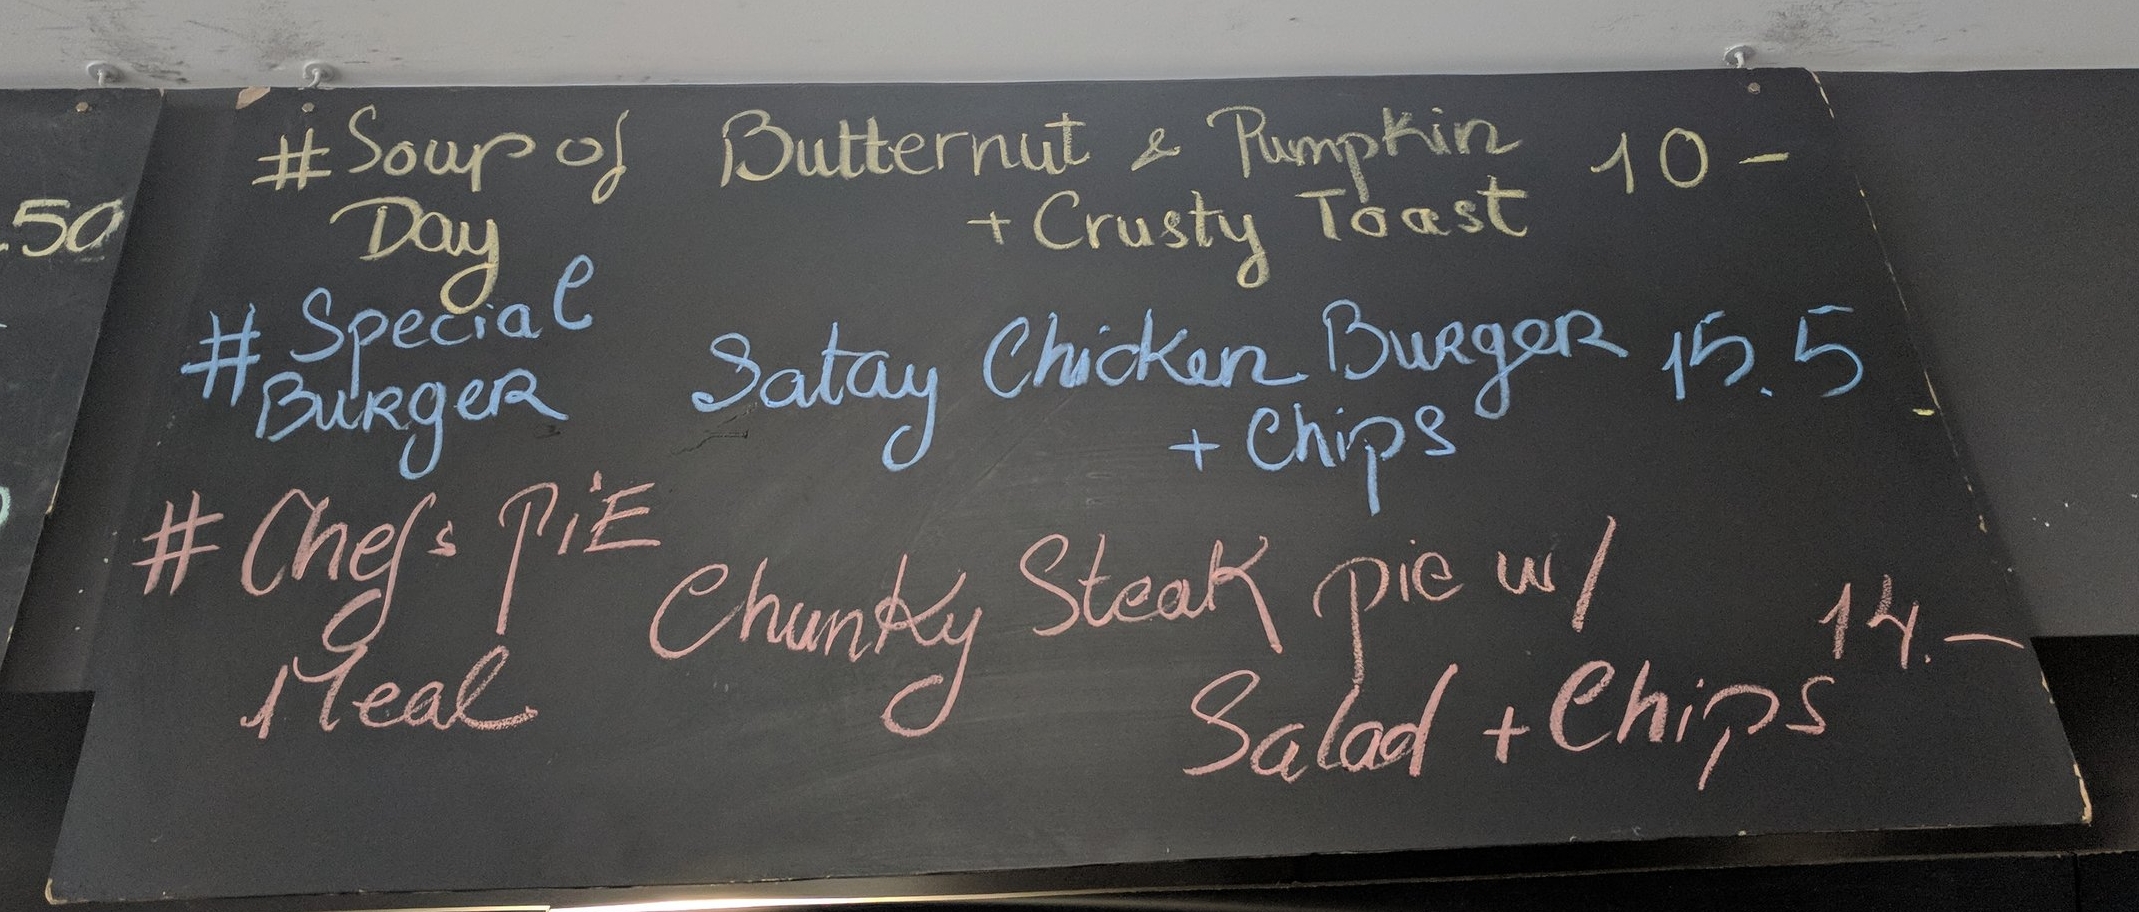 .50
#Soup of Butternut & Pumpkin 10 -
Day + Crusty Toast
# Special
Burger Satay Chicken Burger 15.5
+ Chips
# Chefs PiE
Meal Chunky Steak pie w/ 14.-
Salad + Chips